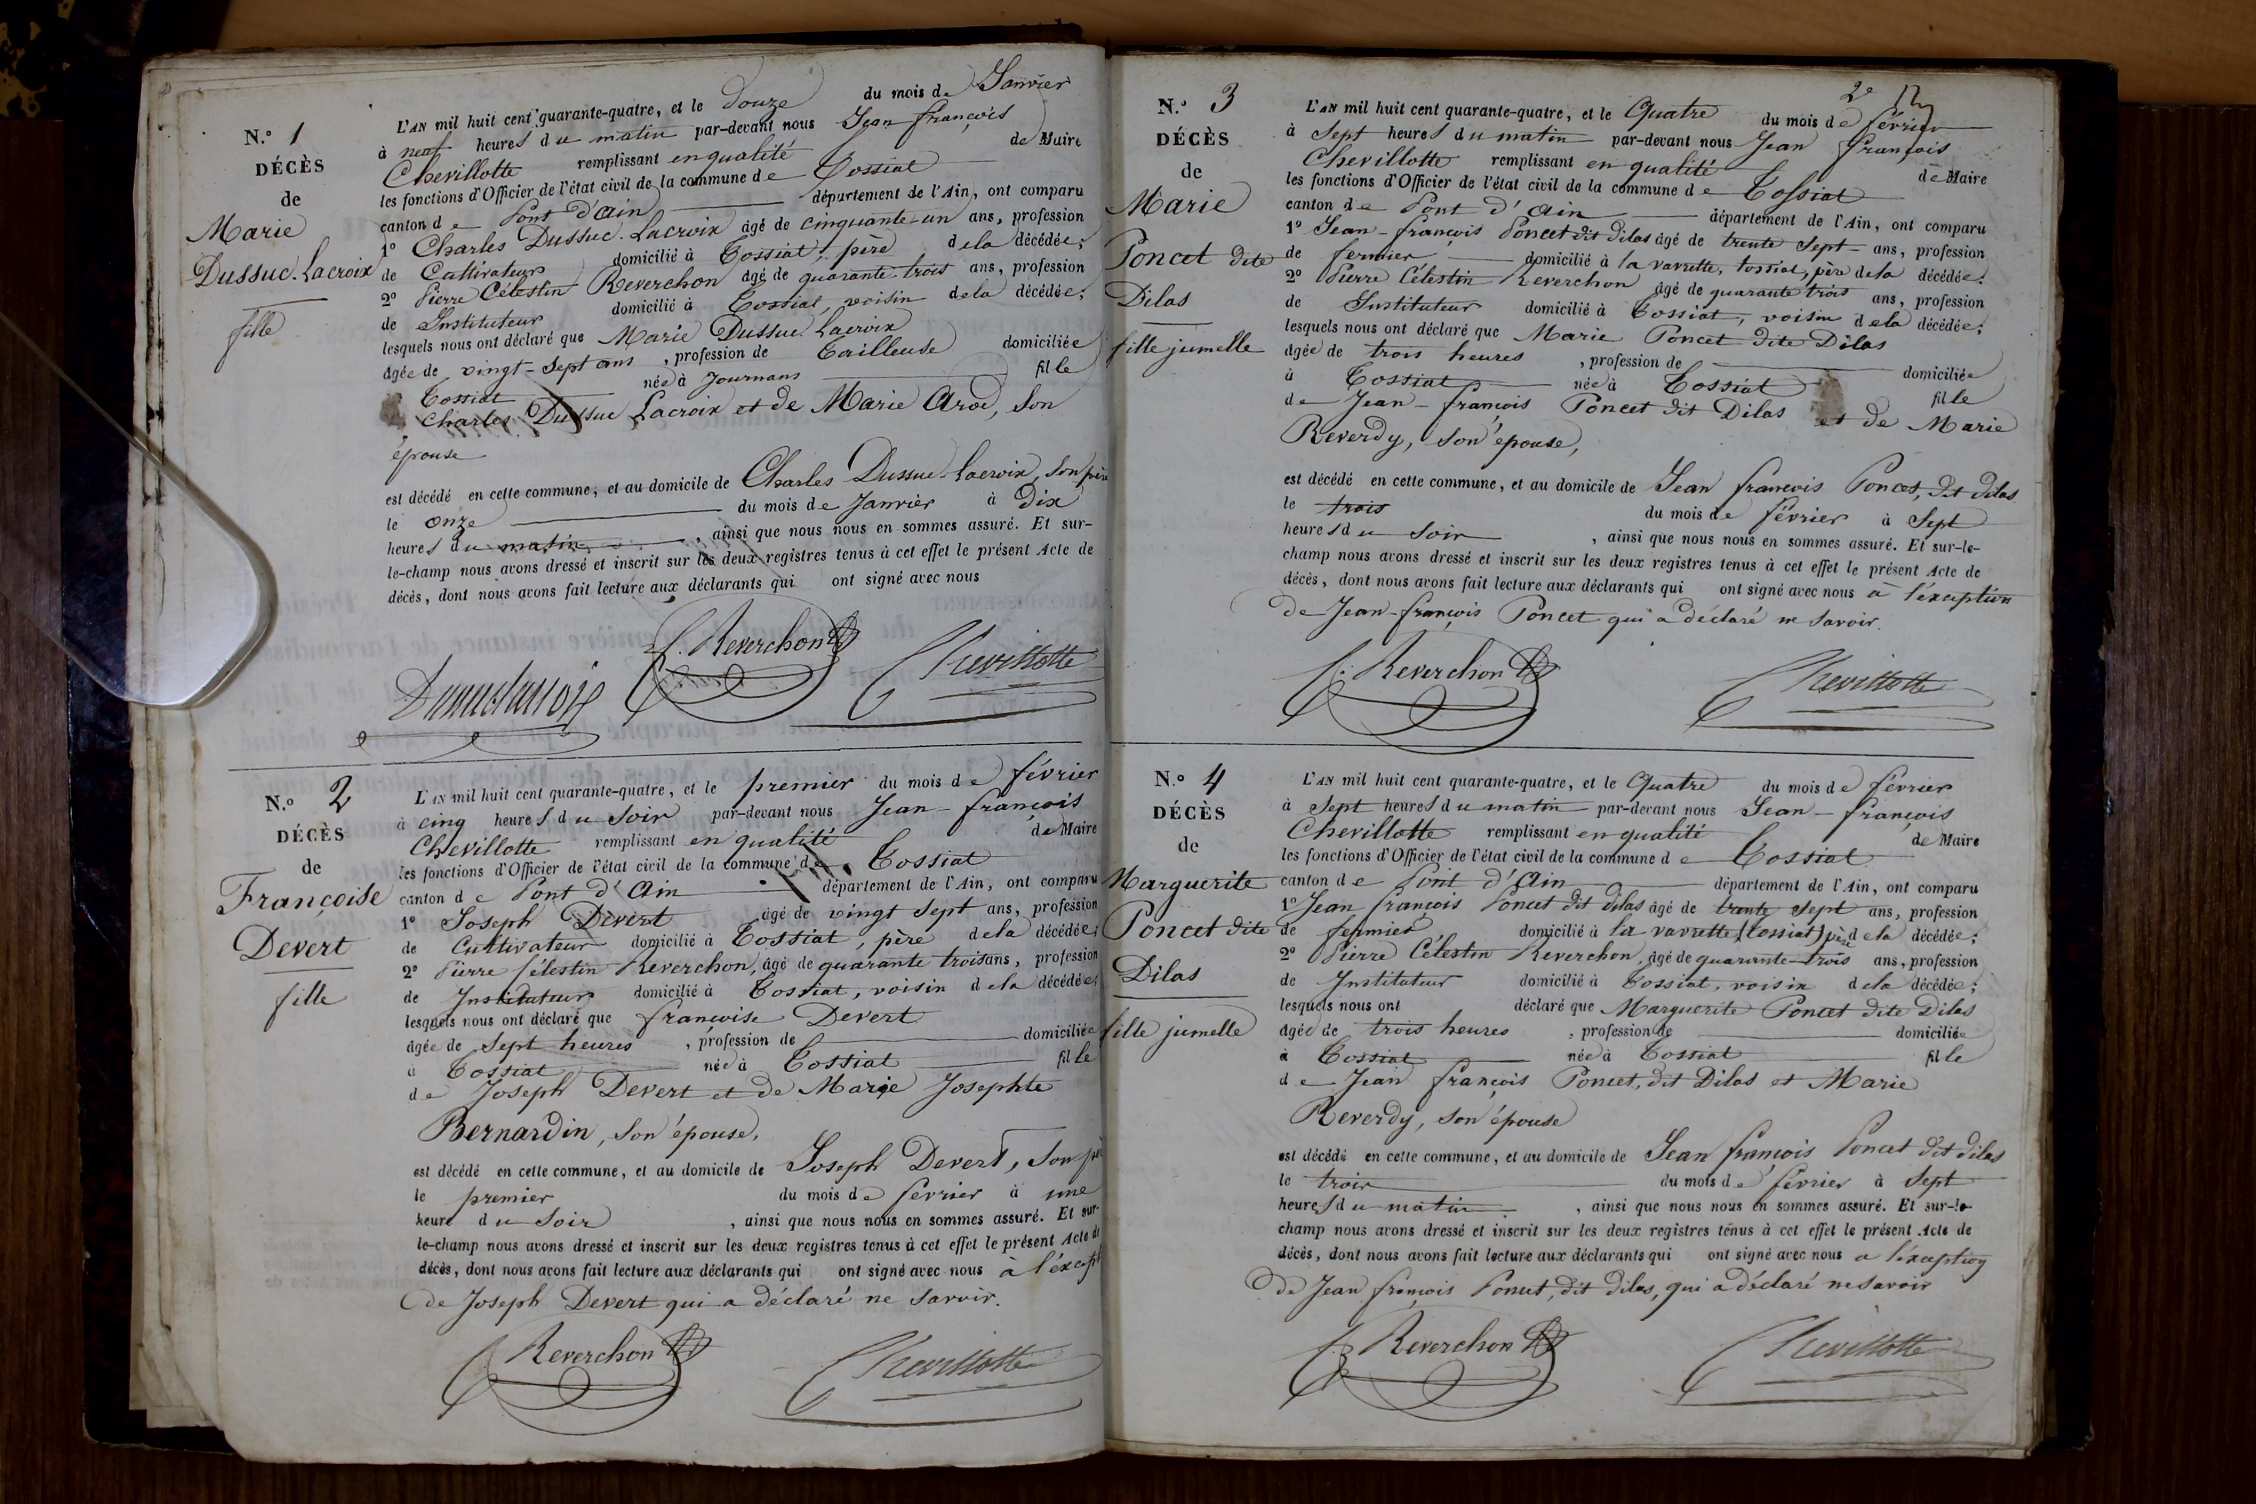 N.º 1
DÉCÈS
de
Marie
Dussuc-Lacroix
fille
L'AN mil huit cent quarante-quatre, et le douze du mois de Janvier
à neuf heures du matin par-devant nous Jean François
Chevillotte remplissant en qualité de Maire
les fonctions d'Officier de l'état civil de la commune de Tossiat
canton de Pont d'Ain département de l'Ain, ont comparu
1º Charles Dussuc-Lacroix âgé de cinquante-un ans, profession
de Cultivateur domicilié à Tossiat, père de la décédée;
2º Pierre Célestin Reverchon âgé de quarante-trois ans, profession
de Instituteur domicilié à Tossiat, voisin de la décédée;
lesquels nous ont déclaré que Marie Dussuc Lacroix
âgée de vingt-sept ans, profession de Tailleuse domiciliée
à Tossiat née à Journans fille
de Charles Dussuc Lacroix et de Marie Arod, son
épouse
est décédé en cette commune, et au domicile de Charles Dussuc-Lacroix, son père
le onze du mois de Janvier à Dix
heures du matin, ainsi que nous nous en sommes assuré. Et sur-
le-champ nous avons dressé et inscrit sur les deux registres tenus à cet effet le présent Acte de
décès, dont nous avons fait lecture aux déclarants qui ont signé avec nous
C. Reverchon
Chevillotte
Dussuc lacroix
N.º 2
DÉCÈS
de
Françoise
Devert
fille
L'AN mil huit cent quarante-quatre, et le premier du mois de février
à cinq heures du soir par-devant nous Jean-françois
Chevillotte remplissant en qualité de Maire
les fonctions d'Officier de l'état civil de la commune de Tossiat
canton de Pont d'Ain département de l'Ain, ont comparu
1º Joseph Devert âgé de vingt sept ans, profession
de Cultivateur domicilié à Tossiat, père de la décédée;
2º Pierre Célestin Reverchon, âgé de quarante trois ans, profession
de Instituteur domicilié à Tossiat, voisin de la décédée;
lesquels nous ont déclaré que françoise Devert
âgée de sept heures, profession de domiciliée
à Tossiat née à Tossiat fille
de Joseph Devert et de Marie Josephte
Bernardin, son épouse,
est décédé en cette commune, et au domicile de Joseph Devert, son pè
le premier du mois de février à une
heure du soir, ainsi que nous nous en sommes assuré. Et sur-
le-champ nous avons dressé et inscrit sur les deux registres tenus à cet effet le présent Acte de
décès, dont nous avons fait lecture aux déclarants qui ont signé avec nous à l'except
de Joseph Devert qui a déclaré ne savoir.
C. Reverchon
Chevillotte
2e
N.º 3
DÉCÈS
de
Marie
Poncet dite
Dilas
fille jumelle
L'AN mil huit cent quarante-quatre, et le Quatre du mois de février
à sept heures du matin par-devant nous Jean François
Chevillotte remplissant en qualité de Maire
les fonctions d'Officier de l'état civil de la commune de Tossiat
canton de Pont d'Ain département de l'Ain, ont comparu
1º Jean-françois Poncet dit dilas âgé de trente sept ans, profession
de fermier domicilié à la vavrette, tossiat, père de la décédée;
2º Pierre Célestin Reverchon âgé de quarante trois ans, profession
de Instituteur domicilié à Tossiat, voisin de la décédée;
lesquels nous ont déclaré que Marie Poncet dite Dilas
âgée de trois heures, profession de domiciliée
à Tossiat née à Tossiat fille
de Jean-françois Poncet dit Dilas et de Marie
Reverdy, son épouse,
est décédé en cette commune, et au domicile de Jean françois Poncet, dit dilas
le trois du mois de février à Sept
heures du soir, ainsi que nous nous en sommes assuré. Et sur-le-
champ nous avons dressé et inscrit sur les deux registres tenus à cet effet le présent Acte de
décès, dont nous avons fait lecture aux déclarants qui ont signé avec nous à l'exception
de Jean-françois Poncet qui a déclaré ne savoir.
C. Reverchon
Chevillotte
N.º 4
DÉCÈS
de
Marguerite
Poncet dite
Dilas
fille jumelle
L'AN mil huit cent quarante-quatre, et le Quatre du mois de février
à Sept heures du matin par-devant nous Jean-françois
Chevillotte remplissant en qualité de Maire
les fonctions d'Officier de l'état civil de la commune de Tossiat
canton de Pont d'Ain département de l'Ain, ont comparu
1º Jean françois Poncet dit dilas âgé de trente sept ans, profession
de fermier domicilié à la vavrette, (tossiat) père de la décédée;
2º Pierre Célestin Reverchon, âgé de quarante-trois ans, profession
de Instituteur domicilié à Tossiat, voisin de la décédée;
lesquels nous ont déclaré que Marguerite Poncet dite Dilas
âgée de trois heures, profession de domiciliée
à Tossiat née à Tossiat fille
de Jean françois Poncet, dit Dilas et Marie
Reverdy, son épouse
est décédé en cette commune, et au domicile de Jean françois Poncet dit dilas
le trois du mois de février à sept
heures du matin, ainsi que nous nous en sommes assuré. Et sur-le-
champ nous avons dressé et inscrit sur les deux registres tenus à cet effet le présent Acte de
décès, dont nous avons fait lecture aux déclarants qui ont signé avec nous à l'exception
de Jean françois Poncet, dit dilas, qui a déclaré ne savoir
C. Reverchon
Chevillotte